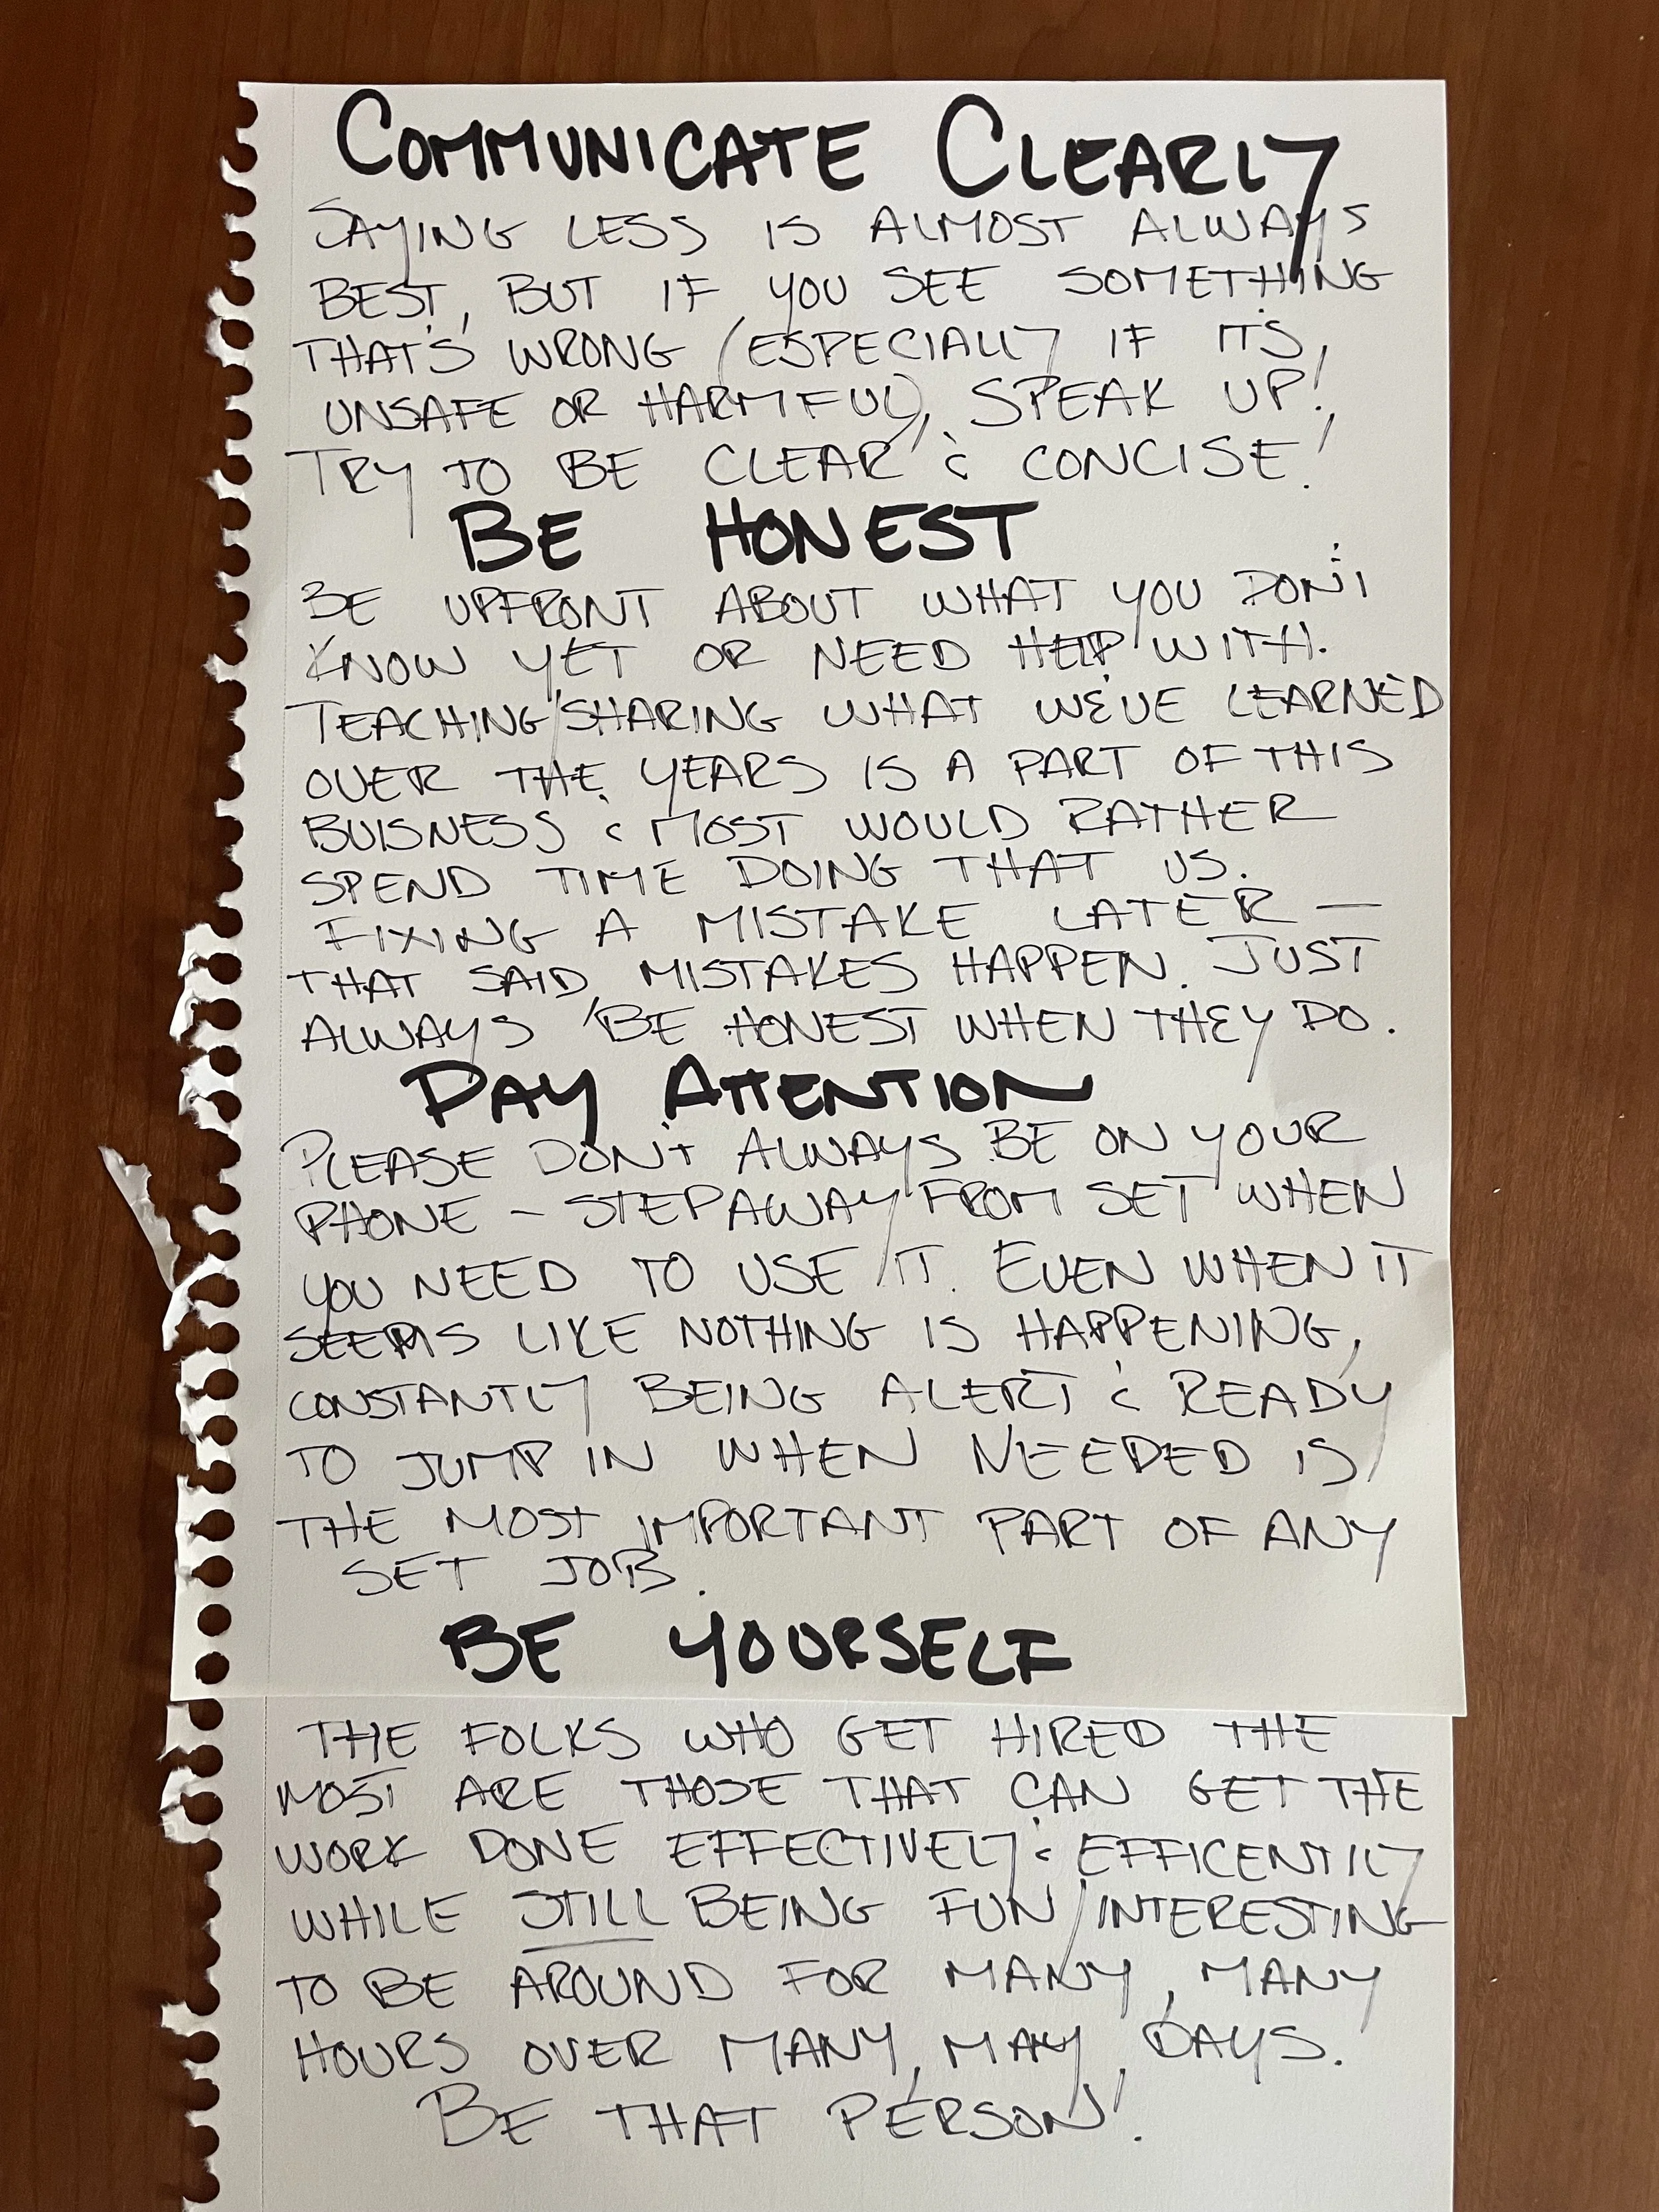 COMMUNICATE CLEARLY
SAYING LESS IS ALMOST ALWAYS
BEST, BUT IF YOU SEE SOMETHING
THAT'S WRONG (ESPECIALLY IF ITS,
UNSAFE OR HARMFUL), SPEAK UP!
TRY TO BE CLEAR & CONCISE!
BE HONEST
BE UPFRONT ABOUT WHAT YOU DON'T
KNOW YET OR NEED HELP WITH.
TEACHING/SHARING WHAT WE'VE LEARNED
OVER THE YEARS IS A PART OF THIS
BUISNESS & MOST WOULD RATHER
SPEND TIME DOING THAT VS.
FIXING A MISTAKE LATER —
THAT SAID MISTAKES HAPPEN. JUST
ALWAYS BE HONEST WHEN THEY DO.
PAY ATTENTION
PLEASE DON'T ALWAYS BE ON YOUR
PHONE - STEP AWAY FROM SET WHEN
YOU NEED TO USE IT. EVEN WHEN IT
SEEMS LIKE NOTHING IS HAPPENING,
CONSTANTLY BEING ALERT & READY
TO JUMP IN WHEN NEEDED IS
THE MOST IMPORTANT PART OF ANY
SET JOB.
BE YOURSELF
THE FOLKS WHO GET HIRED THE
MOST ARE THOSE THAT CAN GET THE
WORK DONE EFFECTIVELY & EFFICENTILY
WHILE STILL BEING FUN/INTERESTING
TO BE AROUND FOR MANY, MANY
HOURS OVER MANY, MAY, DAYS.
BE THAT PERSON!